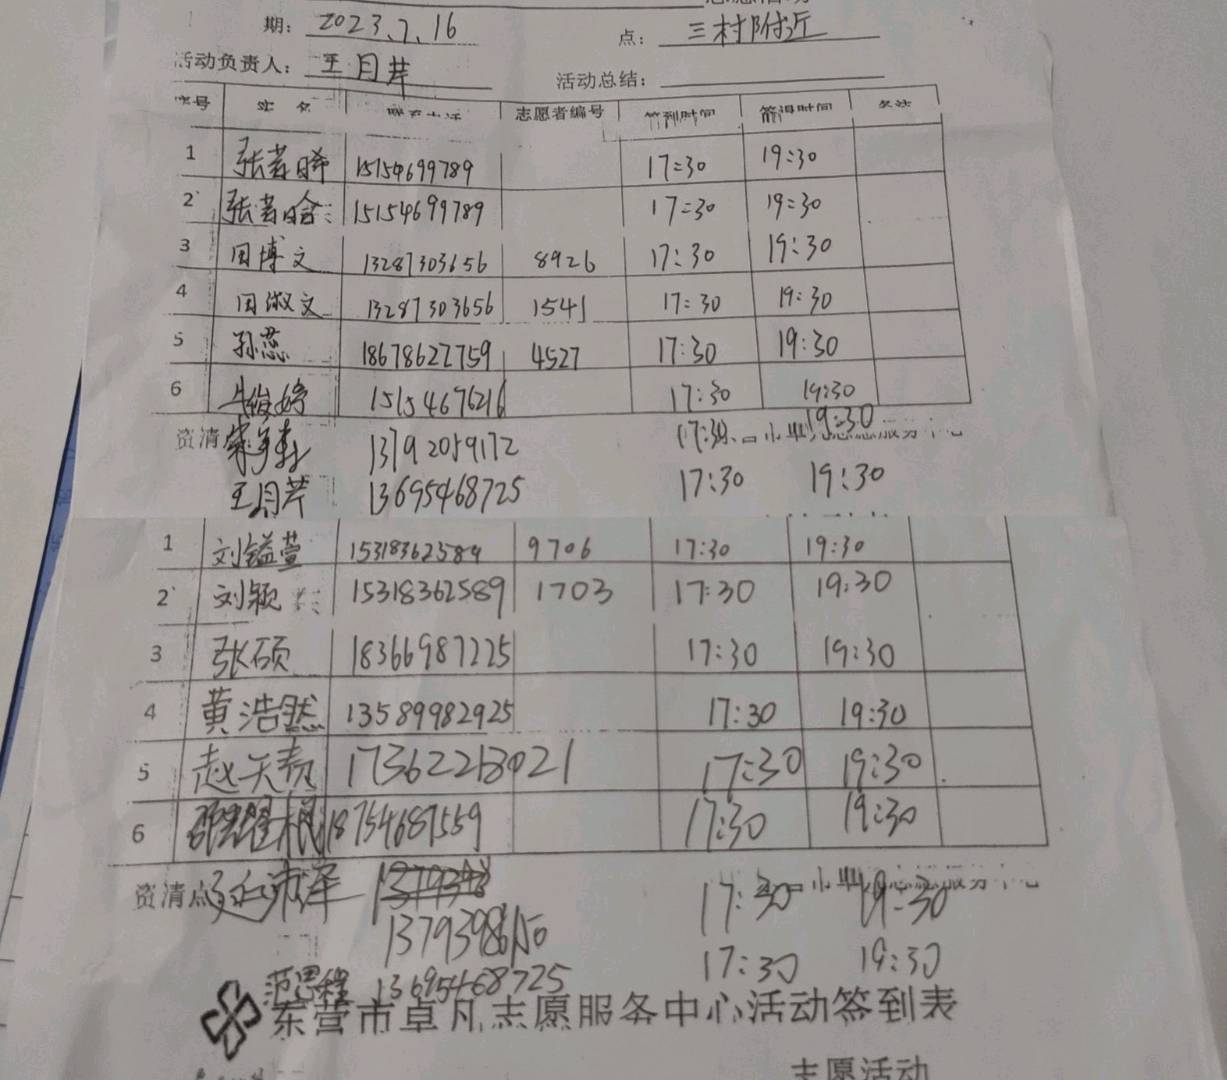 期: 2023.7.16 点: 三村附近
活动负责人: 王月芹 活动总结:
序号 实 名 联系电话 志愿者编号 签到时间 签退时间 备注
1 15154699789 17:30 19:30
2 15154699789 17:30 19:30
3 周博文 13287303656 8926 17:30 19:30
4 周淑文 13287303656 1541 17:30 19:30
5 孙蕊 18678627759 4527 17:30 19:30
6 15154676216 17:30 19:30
资清 13792059172 17:30 19:30
王月芹 13695468725 17:30 19:30
1 刘镒萱 15318362589 9706 17:30 19:30
2 刘颖 15318362589 1703 17:30 19:30
3 张硕 18366987225 17:30 19:30
4 黄浩然 13589982925 17:30 19:30
5 17:30 19:30
6 18754687559 17:30 19:30
资清点 17:30 19:30
17:30 19:30
范思程 13695468725
东营市卓凡志愿服务中心活动签到表
志愿活动